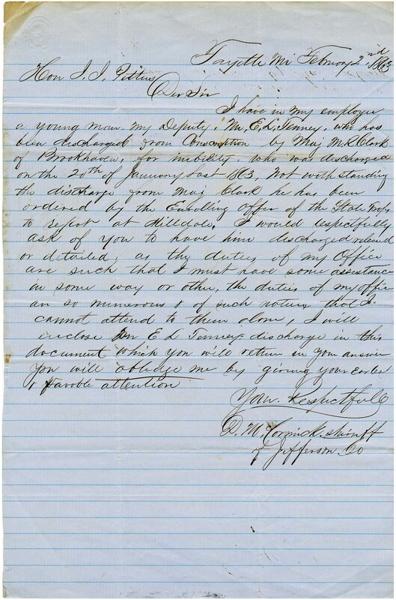 Fayette Mi February 2nd 1863
Hon J. J. Pettus
Dr Sir
I have in my employ
a young man my Deputy, Mr. E. L. Tenney, who has
been discharged from Conscription by Maj M. R. Clark
of Brookhaven, for inability, who was discharged
on the 20th of January last 1863, Not with standing
this discharge from Maj Clark he has been
ordered by the Enrolling officer of the State Troops
to report at Hilldale, I would respectfully
ask of you to have him discharged
or detailed, as the duties of my Office
are such that I must have some assistance
in some way or other, the duties of my office
are so numerous & of such nature that I
cannot attend to them alone, I will
enclose Mr E L Tenneys discharge in this
document which you will return in your answer
You will oblidge me by giving your earley
& favorable attention
Your Respectfull
D. McCormick Shiriff
of Jefferson Co